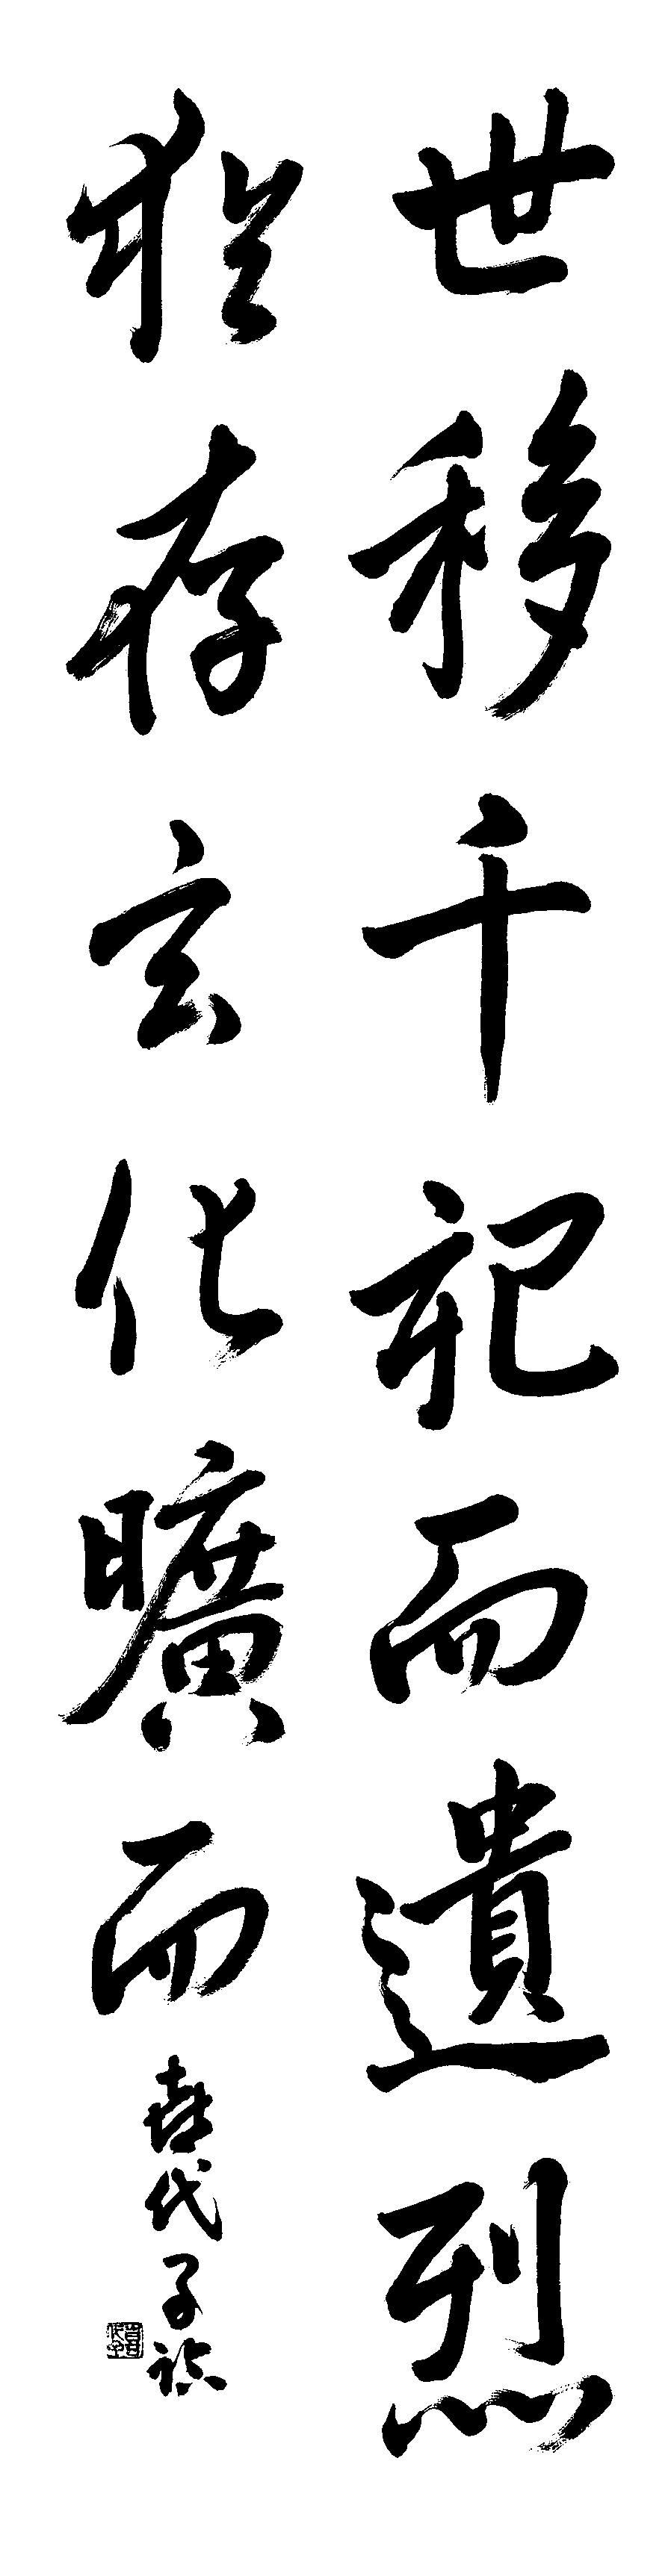 世移千祀而遺烈
猶存玄化曠而
喜代子